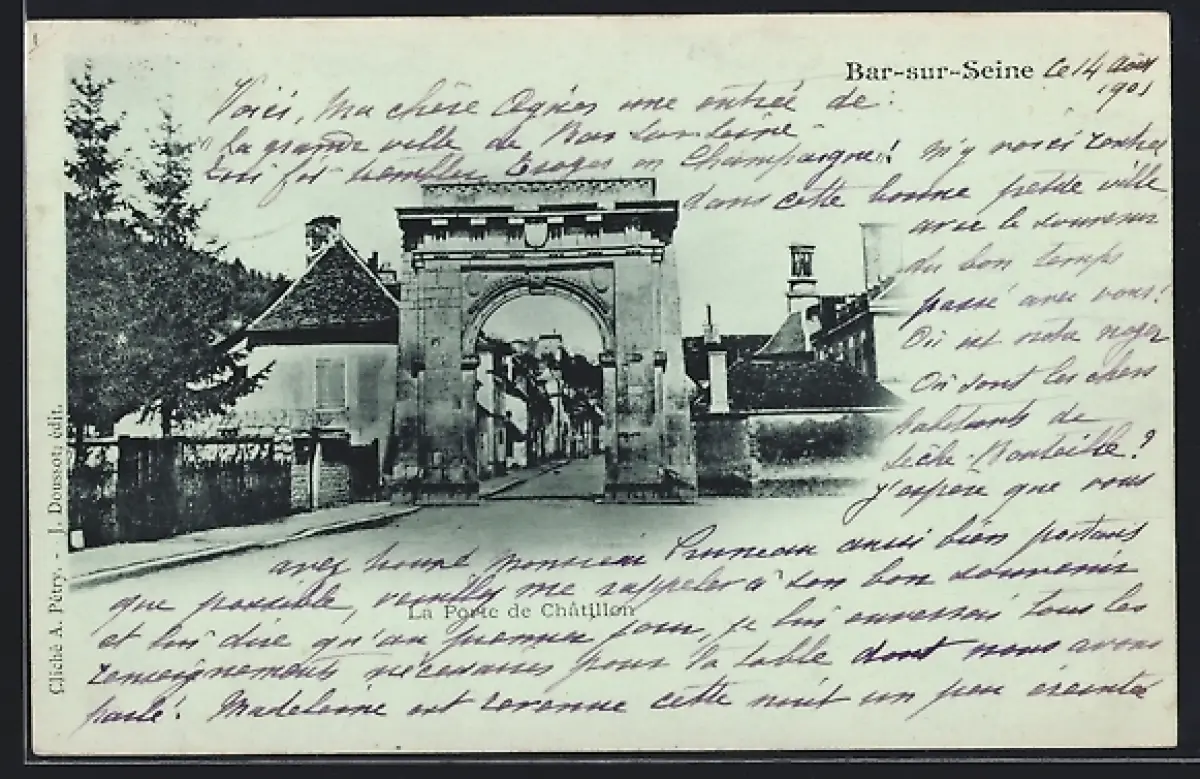 Bar-sur-Seine le 14 Août
1901
Voici, Ma chère Agnès une entrée de
la grande ville de Bar sur Seine
qui fit trembler Troyes en Champagne! M'y voici rentrée
dans cette bonne petite ville
avec le souvenir
du bon temps
passé avec vous!
Où est notre
Où sont les chers
habitants de
Bouteille?
J'espère que vous
avez trouvé Monsieur Pruneau aussi bien portant
que possible, veuillez me rappeler à son bon souvenir
et lui dire qu'au premier jour, je lui enverrai tous les
renseignements nécessaires pour la table dont nous avons
parlé. Madeleine est revenue cette nuit un peu éreintée
La Porte de Châtillon
Cliché A. Pétry. - J. Doussot, édit.